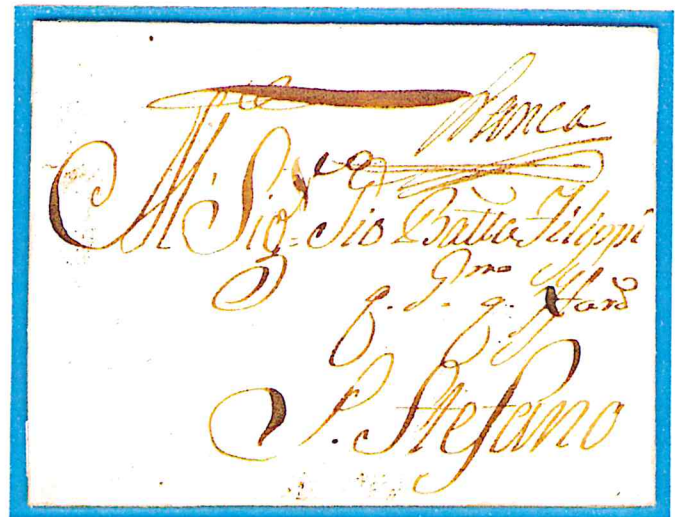 franca
Al Sig.r Gio Batta Filippi
q. g. q.
S. Stefano